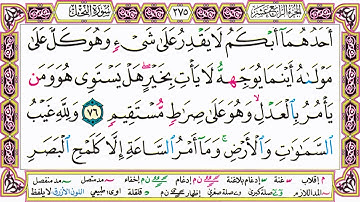 الجزء الرابع عشر ٢٧٥ سورة النحل
أَحَدُهُمَآ أَبۡكَمُ لَا يَقۡدِرُ عَلَىٰ شَىۡءٖ وَهُوَ كَلٌّ عَلَىٰ
مَوۡلَىٰهُ أَيۡنَمَا يُوَجِّههُّ لَا يَأۡتِ بِخَيۡرٍ هَلۡ يَسۡتَوِى هُوَ وَمَن
يَأۡمُرُ بِٱلۡعَدۡلِ وَهُوَ عَلَىٰ صِرَٰطٖ مُّسۡتَقِيمٖ ٧٦ وَلِلَّهِ غَيۡبُ
ٱلسَّمَٰوَٰتِ وَٱلۡأَرۡضِ وَمَآ أَمۡرُ ٱلسَّاعَةِ إِلَّا كَلَمۡحِ ٱلۡبَصَرِ